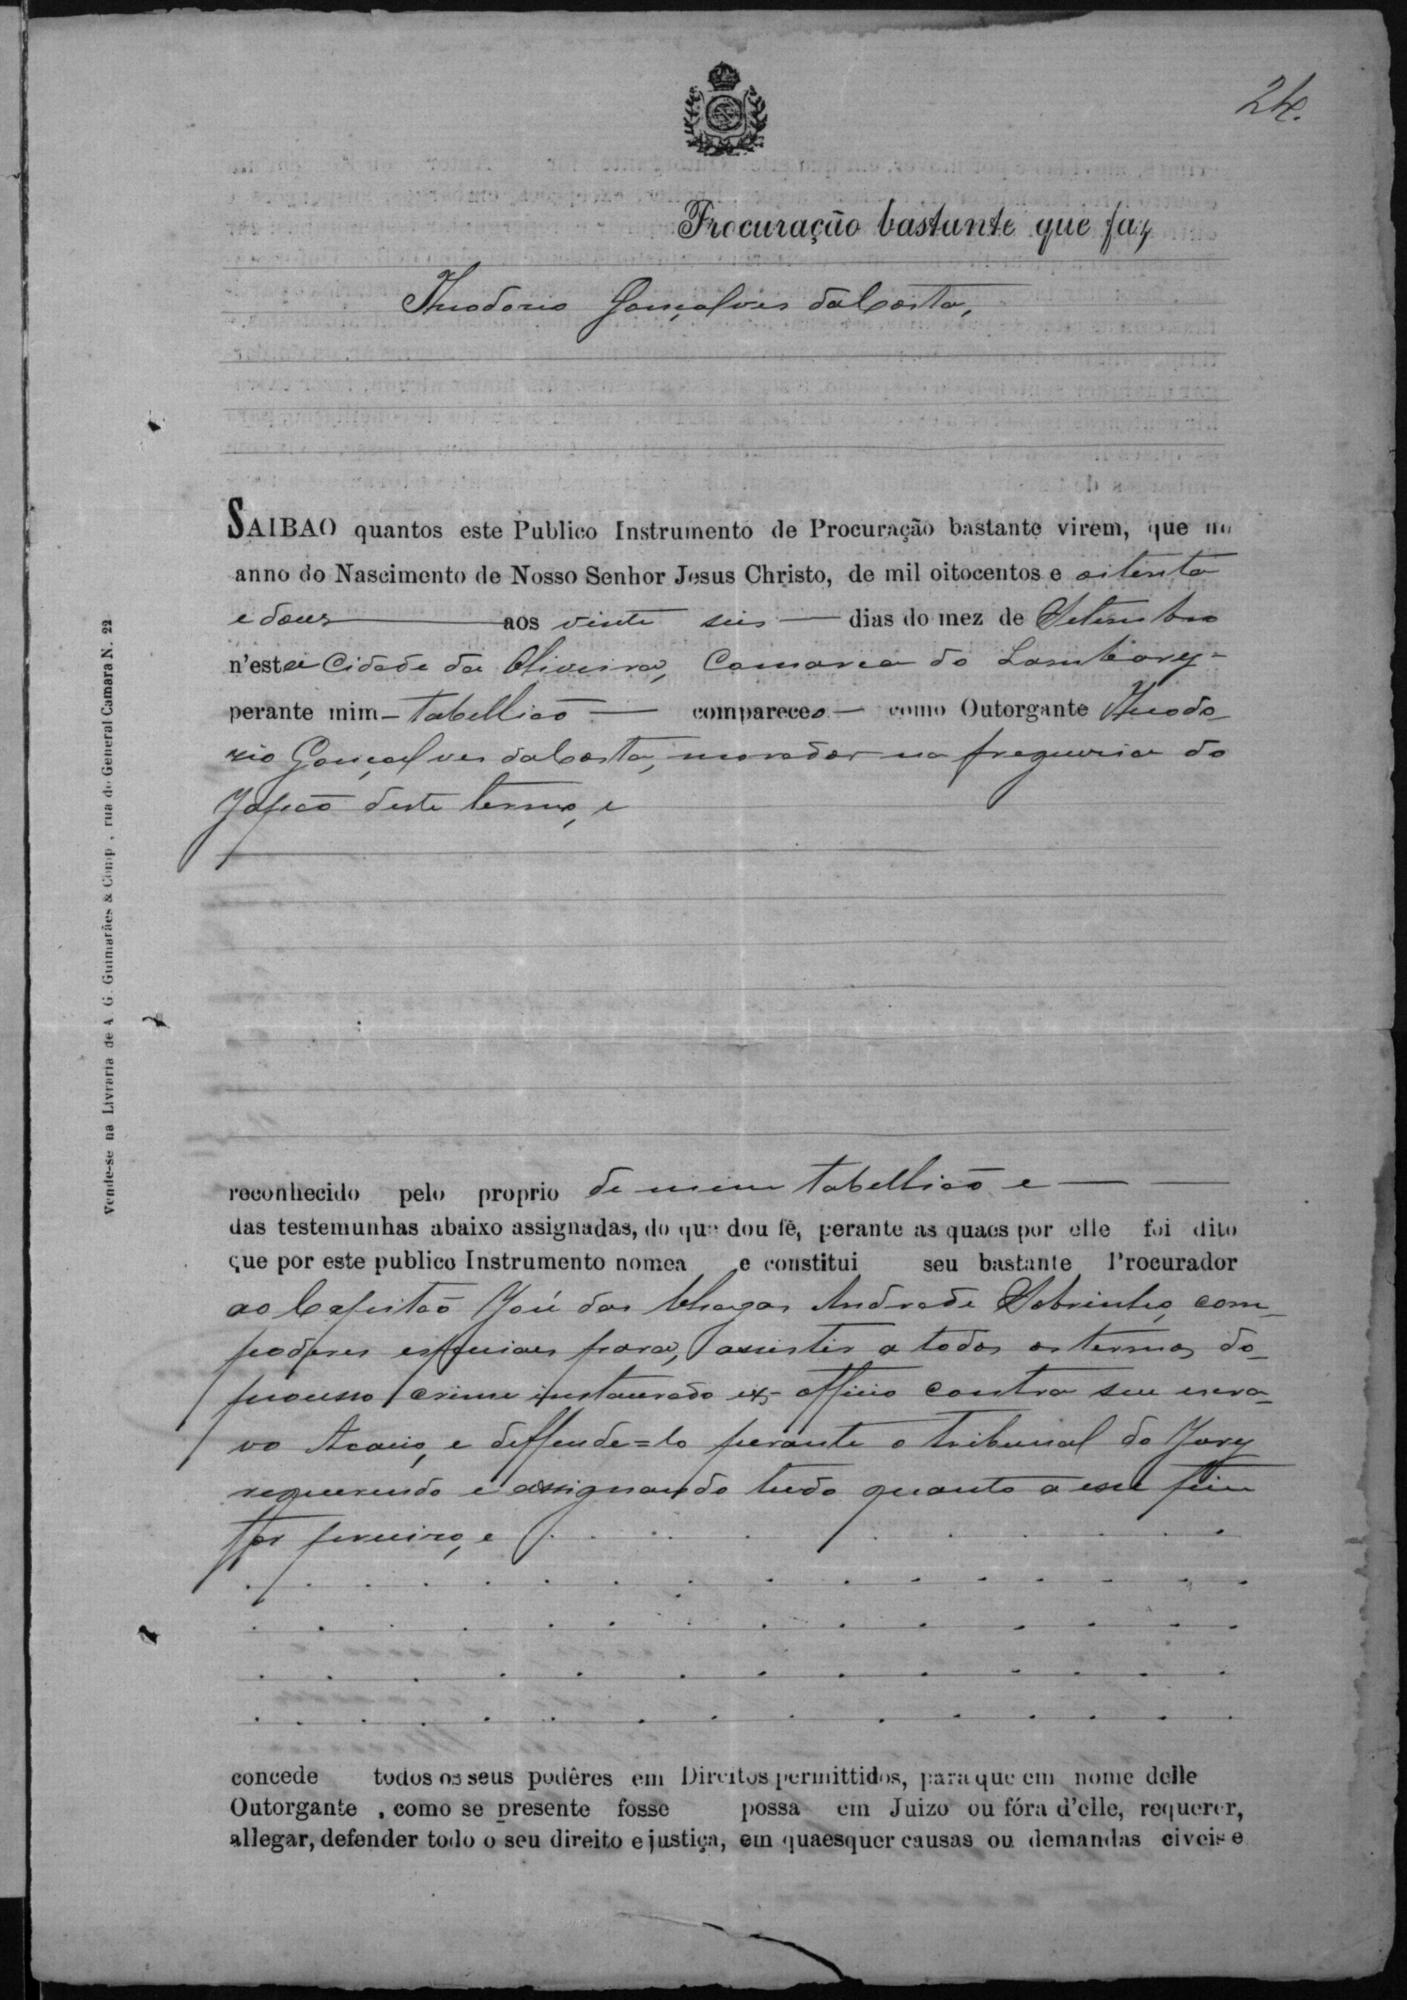 24.
Procuração bastante que faz
Theodorio Gonçalves da Costa,
SAIBAO quantos este Publico Instrumento de Procuração bastante virem, que no
anno do Nascimento de Nosso Senhor Jesus Christo, de mil oitocentos e oitenta
e dous aos vinte seis dias do mez de Setembro
n'esta Cidade da Oliveira, Comarca do Lambary-
perante mim - Tabellião - compareceo - como Outorgante Theodo
rio Gonçalves da Costa, morador na freguesia do
Japão deste termo, e
reconhecido pelo proprio de mim Tabellião e
das testemunhas abaixo assignadas, do que dou fé, perante as quaes por elle foi dito
que por este publico Instrumento nomea e constitui seu bastante Procurador
ao Capitão José das Chagas Andrade Sobrinho, com
poderes especiaes para, assistir a todos os termos do
processo crime instaurado ex-officio contra seu escra-
vo Acacio, e deffende=lo perante o Tribunal do Jury
requerendo e assignando tudo quanto a esse fim
for preciso, e
concede todos os seus podêres em Direitos permittidos, para que em nome delle
Outorgante, como se presente fosse possa em Juizo ou fóra d'elle, requerer,
allegar, defender todo o seu direito e justiça, em quaesquer causas ou demandas civeis e
Vende-se na Livraria de A. G. Guimarães & Comp., rua do General Camara N. 22